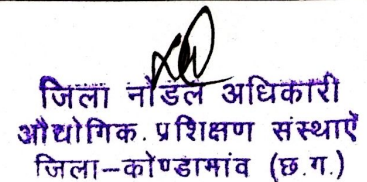 जिला नोडल अधिकारी
औद्योगिक. प्रशिक्षण संस्थाएँ
जिला-कोण्डागांव (छ.ग.)